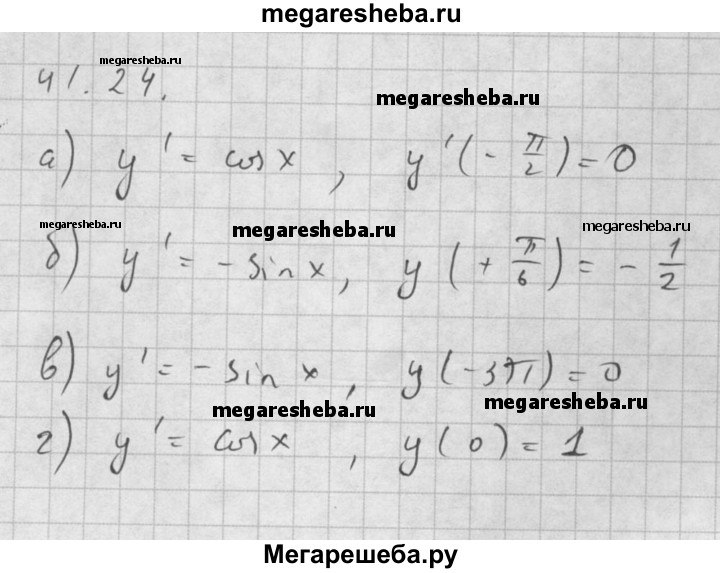 megaresheba.ru
megaresheba.ru
41.24.
megaresheba.ru
а) y' = cos x, y'(-π/2) = 0
megaresheba.ru megaresheba.ru megaresheba.ru
б) y' = -sin x, y(+π/6) = -1/2
в) y' = -sin x, y(-3π) = 0
megaresheba.ru megaresheba.ru
г) y' = cos x, y(0) = 1
Мегарешеба.ру